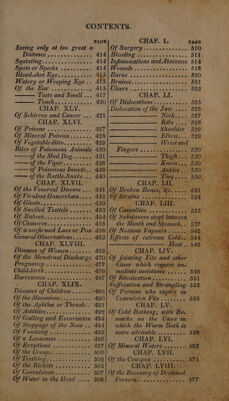 CONTENTS.
PAGE
Seeing only at too great a
Distance . . . . . 414
Squinting . . . . . 414
Spots or Specks . . . . 414
Blood-shot Eye . . . . 415
Watery or Weeping Eye . 415
Of the Ear . . . . . 415
—— Taste and Smell . . . 417
—— Touch . . . . . 420
CHAP. XLV.
Of Schirrus and Cancer . . . 421
CHAP. XLVI.
Of Poisons . . . . . 427
Of Mineral Poisons . . . 428
Of Vegetable ditto . . . . 429
Bites of Poisonous Animals 430
—— of the Mad Dog . . . 431
—— of the Viper . . . . 438
—— of Poisonous Insects . . 438
—— of the Rattle-Snake . . 440
CHAP. XLVII.
Of the Venereal Disease . . . 441
Of Virulent Gonorrhœa . . . 442
Of Gleets . . . . . 450
Of Swelled Testicle . . . 453
Of Buboes . . . . . 454
Of Chancres . . . . . 455
Of a confirmed Lues or Pox 458
General Observations . . . 463
CHAP. XLVIII.
Diseases of Women . . . 469
Of the Menstrual Discharge 470
Pregnancy . . . . . 477
Child-birth . . . . . 479
Barrenness . . . . . 487
CHAP. XLIX.
Diseases of Children . . . 488
Of the Meconium . . . . 490
Of the Aphthæ or Thrush . . 491
Of Acidities . . . . . 492
Of Galling and Excoriation 494
Of Stoppage of the Nose . . 494
Of Vomiting . . . . . 495
Of a Looseness . . . . 496
Of Eruptions . . . . . 497
Of the Croup . . . . . 500
Of Teething . . . . . 502
Of the Rickets . . . . . 504
Of Convulsions . . . . 507
Of Water in the Head . . . 508
CHAP. L.
PAGE
Of Surgery . . . . . 510
Bleeding . . . . . 511
Inflammations and Abscesses 514
Wounds . . . . . 516
Burns . . . . . 520
Bruises . . . . . 521
Ulcers . . . . . 523
CHAP. LI.
Of Dislocations . . . . 525
Dislocation of the Jaw . . . 526
—— Neck . . . 527
—— Ribs . . . 528
—— Shoulder 529
—— Elbow . . . 529
—— Wrist and
Fingers . . . 530
—— Thigh . . . 530
—— Knees . . . 530
—— Ankles . . . 530
—— Toes . . . 530
CHAP. LII.
Of Broken Bones, &c. . . . 531
Of Strains . . . . . 534
CHAP. LIII.
Of Casualties . . . . . 535
Of Substances stopt between
the Mouth and Stomach . . 537
Of Noxious Vapours . . . 543
Effects of extreme Cold . . . 544
—— Heat . 546
CHAP. LIV.
Of fainting Fits and other
Cases which require im-
mediate assistance . . . 546
Of Intoxication . . . . 551
Suffocation and Strangling 553
Of Persons who expire in
Convulsion Fits . . . . 555
CHAP. LV.
Of Cold Bathing, with Re-
marks on the Cases in
which the Warm Bath is
more advisable . . . . 558
CHAP. LVI.
Of Mineral Waters . . . 563
CHAP. LVII.
Of the Cow-pox . . . . 571
CHAP. LVIII.
Of the Recovery of Drowned
Persons . . . . . 577